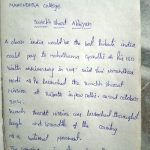 MAHENDRA College
Swachh Bharat Abhiyan
A clean india would be the best tribute india
could pay to mahathma Gandhi on his 150
birth anniversary in 2019 said shri narendhra
modi as he launched the swachh bharat
mission at rajpath in new delhi on 2nd october
2014.
Swachh bharat mission was launched throughout
length and breadth of the country
as a national movement.